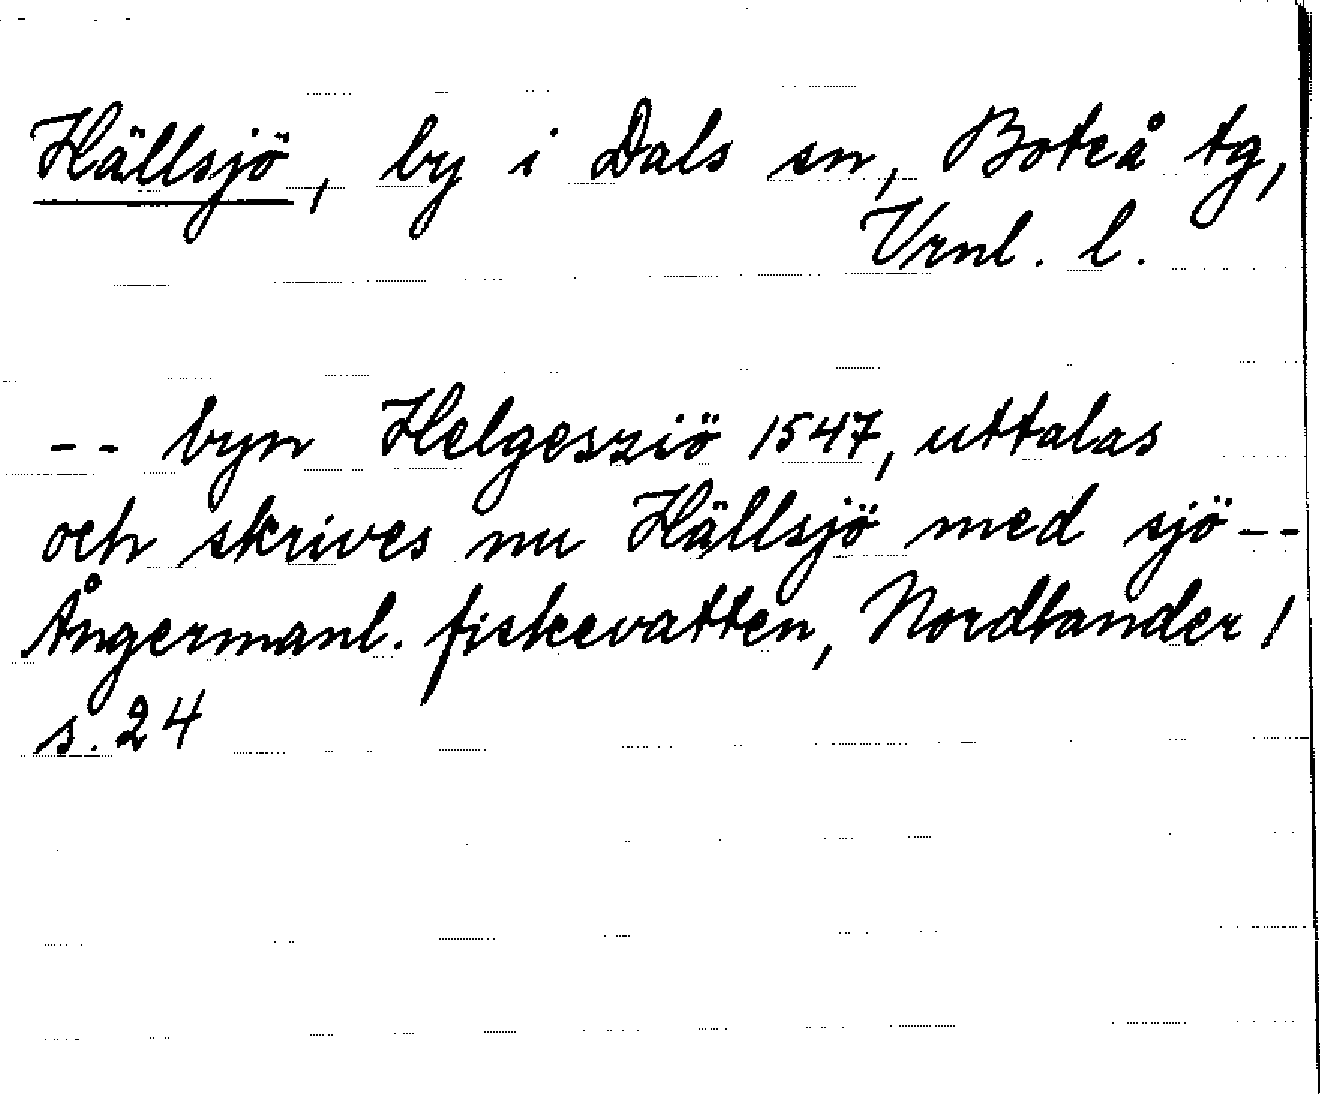 Hällsjö, by i Dals sn, Boteå tg,
Vrnl. l.
-- byn Helgesziö 1547, uttalas
och skrives nu Hällsjö med sjö--
Ångermanl. fiskevatten, Nordlander /
s. 24